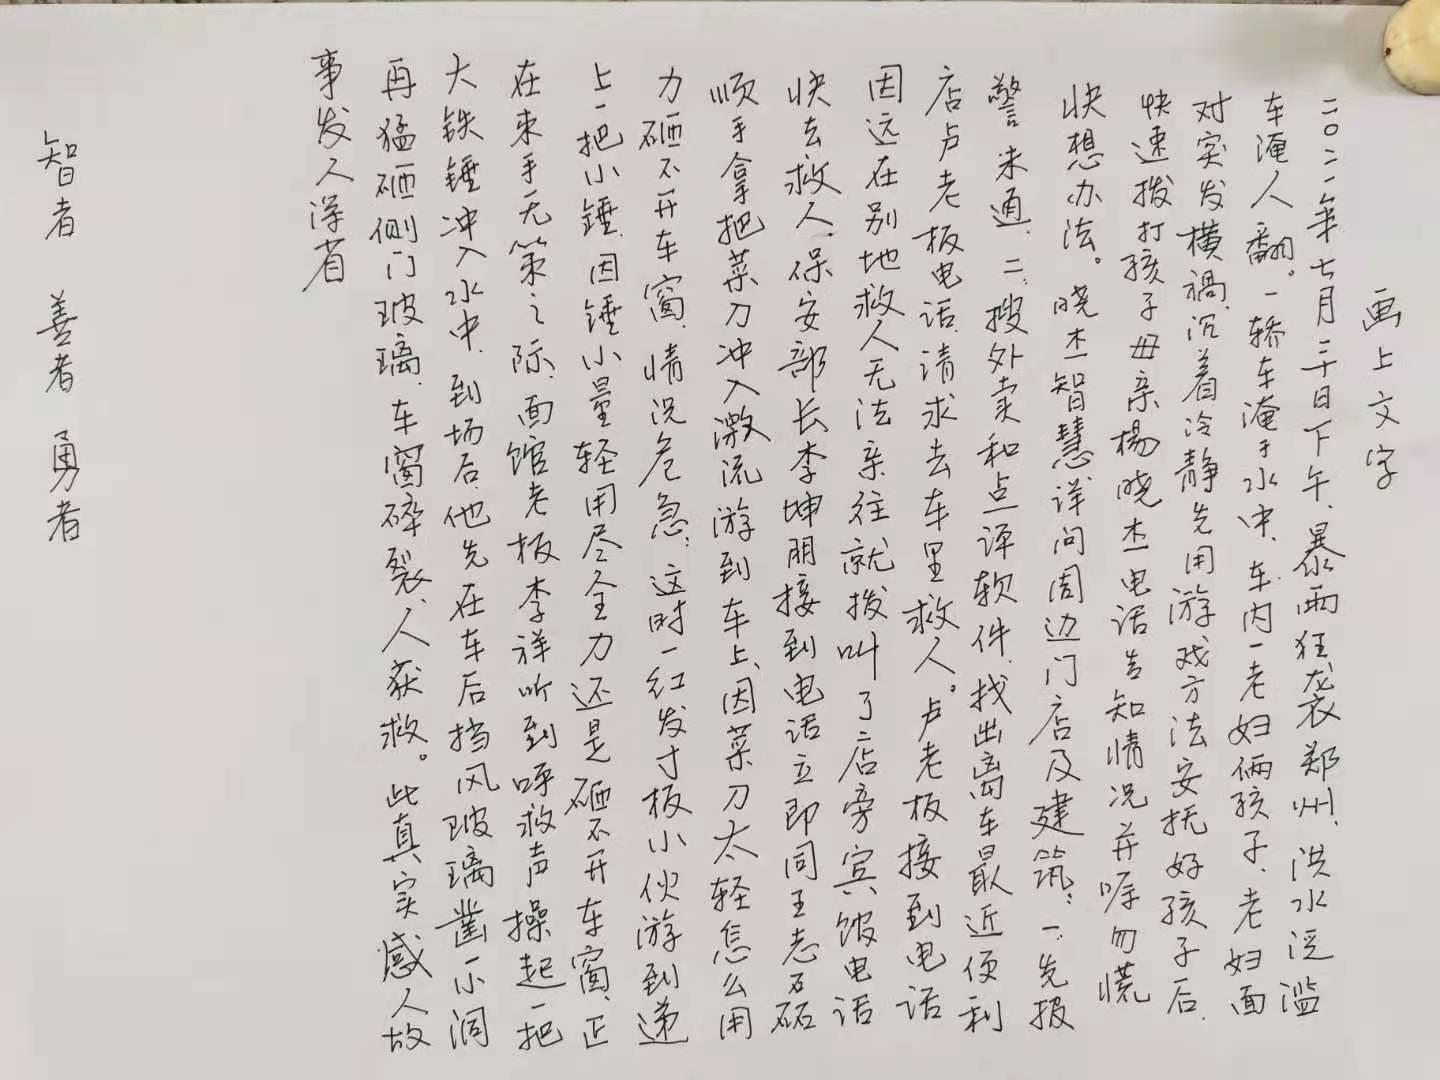 画上文字
二〇二一年七月二十日下午、暴雨狂袭郑州、洪水泛滥
车淹人翻。一轿车淹于水中、车内一老妇俩孩子、老妇面
对突发横祸、沉着冷静先用游戏方法安抚好孩子后、
快速拨打孩子母亲杨晓杰电话告知情况并嘱勿慌
快想办法。晓杰智慧详问周边门店及建筑：一、先报
警未通、二、搜外卖和点评软件、找出离车最近便利
店卢老板电话、请求去车里救人。卢老板接到电话
因远在别地救人无法亲往就拨叫了店旁宾馆电话
快去救人、保安部长李坤朋接到电话立即同王志石
顺手拿把菜刀冲入激流游到车上、因菜刀太轻怎么用
力砸不开车窗、情况危急；这时一红发寸板小伙游到递
上一把小锤、因锤小量轻用尽全力还是砸不开车窗、正
在束手无策之际、面馆老板李祥听到呼救声操起一把
大铁锤冲入水中、到场后、他先在车后挡风玻璃凿一小洞
再猛砸侧门玻璃、车窗碎裂、人获救。此真实感人故
事发人深省
智者 善者 勇者